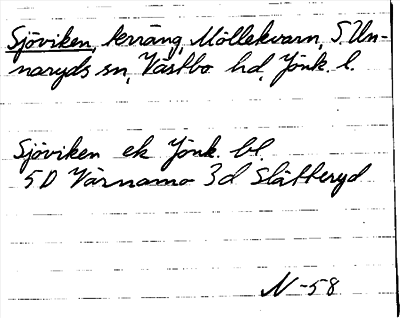 Sjöviken, terräng, Möllekvarn, S. Un-
naryds sn, Västbo hd, Jönk. l.
Sjöviken ek Jönk. bl.
5D Värnamo 3d Slätteryd
N -58